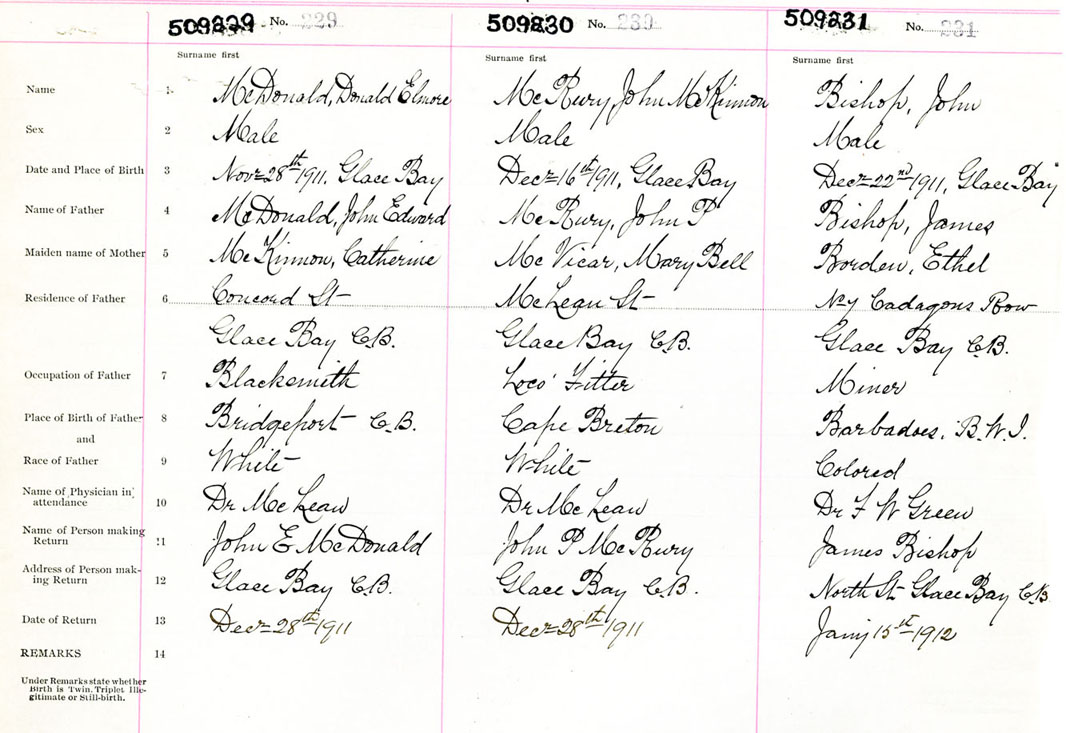 509229 No. 229 509230 No. 230 509231 No. 231
Surname first Surname first Surname first
Name 1 McDonald, Donald Elmore McRury, John McKinnon Bishop, John
Sex 2 Male Male Male
Date and Place of Birth 3 Novr 28th 1911, Glace Bay Decr 16th 1911, Glace Bay Decr 22nd 1911, Glace Bay
Name of Father 4 McDonald, John Edward McRury, John P Bishop, James
Maiden name of Mother 5 McKinnon, Catherine McVicar, Mary Bell Borden, Ethel
Residence of Father 6 Concord St McLean St No 7 Cadagons Row
Glace Bay C.B. Glace Bay C.B. Glace Bay C.B.
Occupation of Father 7 Blacksmith Loco' Fitter Miner
Place of Birth of Father 8 Bridgeport C.B. Cape Breton Barbadoes, B.W.I.
and
Race of Father 9 White White Colored
Name of Physician in
attendance 10 Dr McLean Dr McLean Dr F W Green
Name of Person making
Return 11 John E McDonald John P McRury James Bishop
Address of Person mak-
ing Return 12 Glace Bay C.B. Glace Bay C.B. North St Glace Bay C.B.
Date of Return 13 Decr 28th 1911 Decr 28th 1911 Jany 15st 1912
REMARKS 14
Under Remarks state whether
Birth is Twin, Triplet Ille-
gitimate or Still-birth.